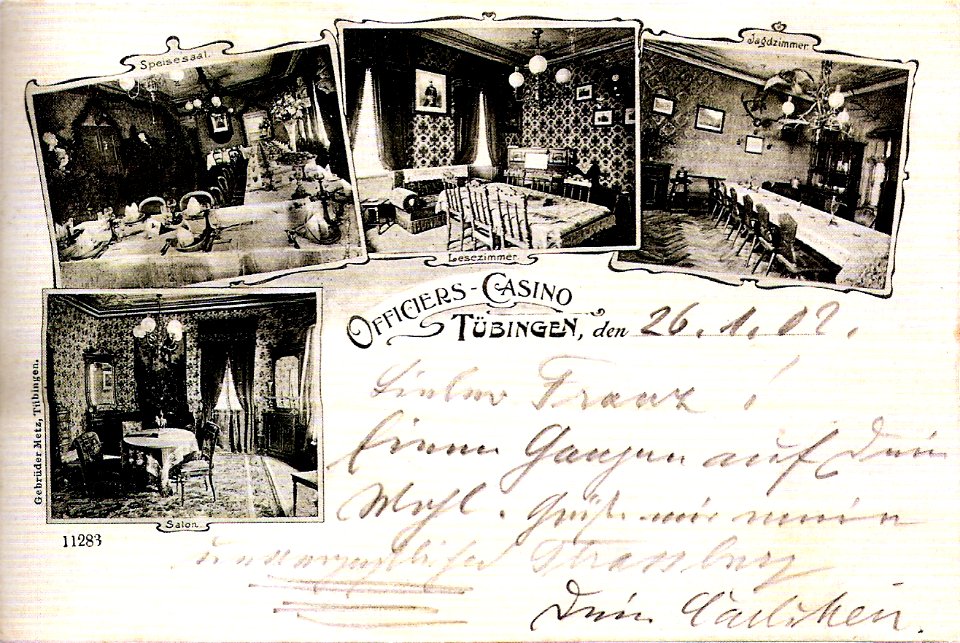 Speisesaal.
Jagdzimmer.
Lesezimmer.
OFFICIERS-CASINO
TÜBINGEN, den 26. 1. 02.
Lieber Franz!
Einen Ganzen auf Dein
Wohl. Grüße mir mein
Strassburg
Dein
Salon.
Gebrüder Metz, Tübingen.
11283